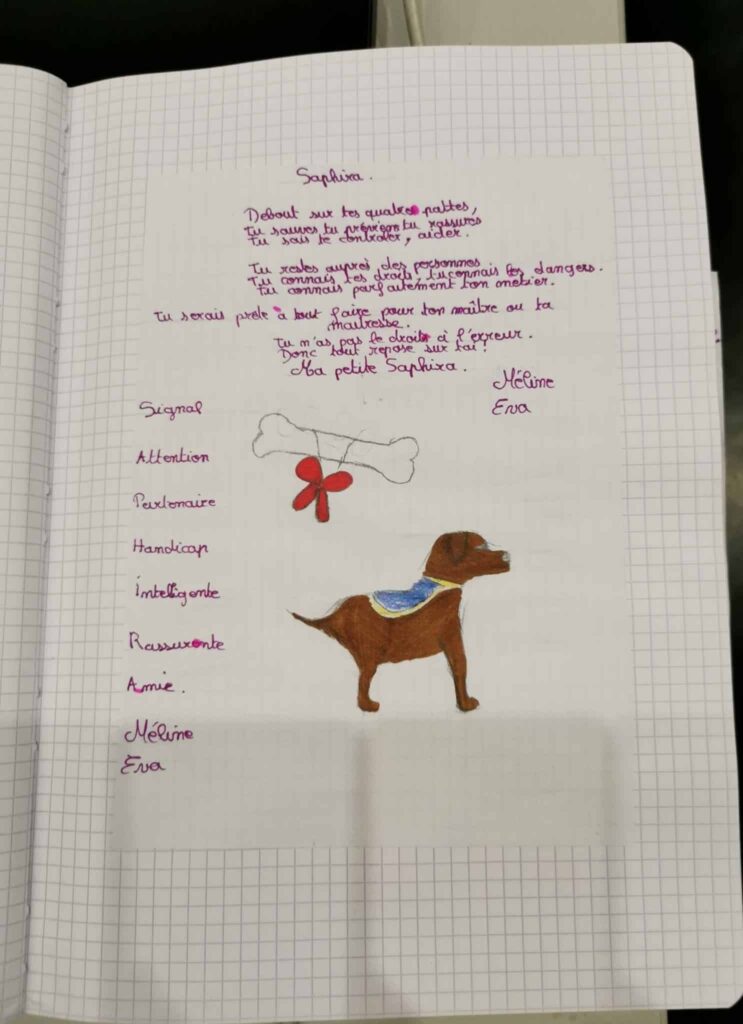 Saphira.
Debout sur tes quatre pattes,
tu sauves tu préviens tu rassures
Tu sais te contrôler, aider.
Tu restes auprès des personnes
Tu connais tes droits, tu connais les dangers.
tu connais parfaitement ton métier.
tu serais prête à tout faire pour ton maître ou ta
maîtresse.
Tu n'as pas le droit à l'erreur.
Donc tout repose sur toi!
Ma petite Saphira.
Méline
Eva
Signal
Attention
Partenaire
Handicap
intelligente
Rassurante
Amie.
Méline
Eva